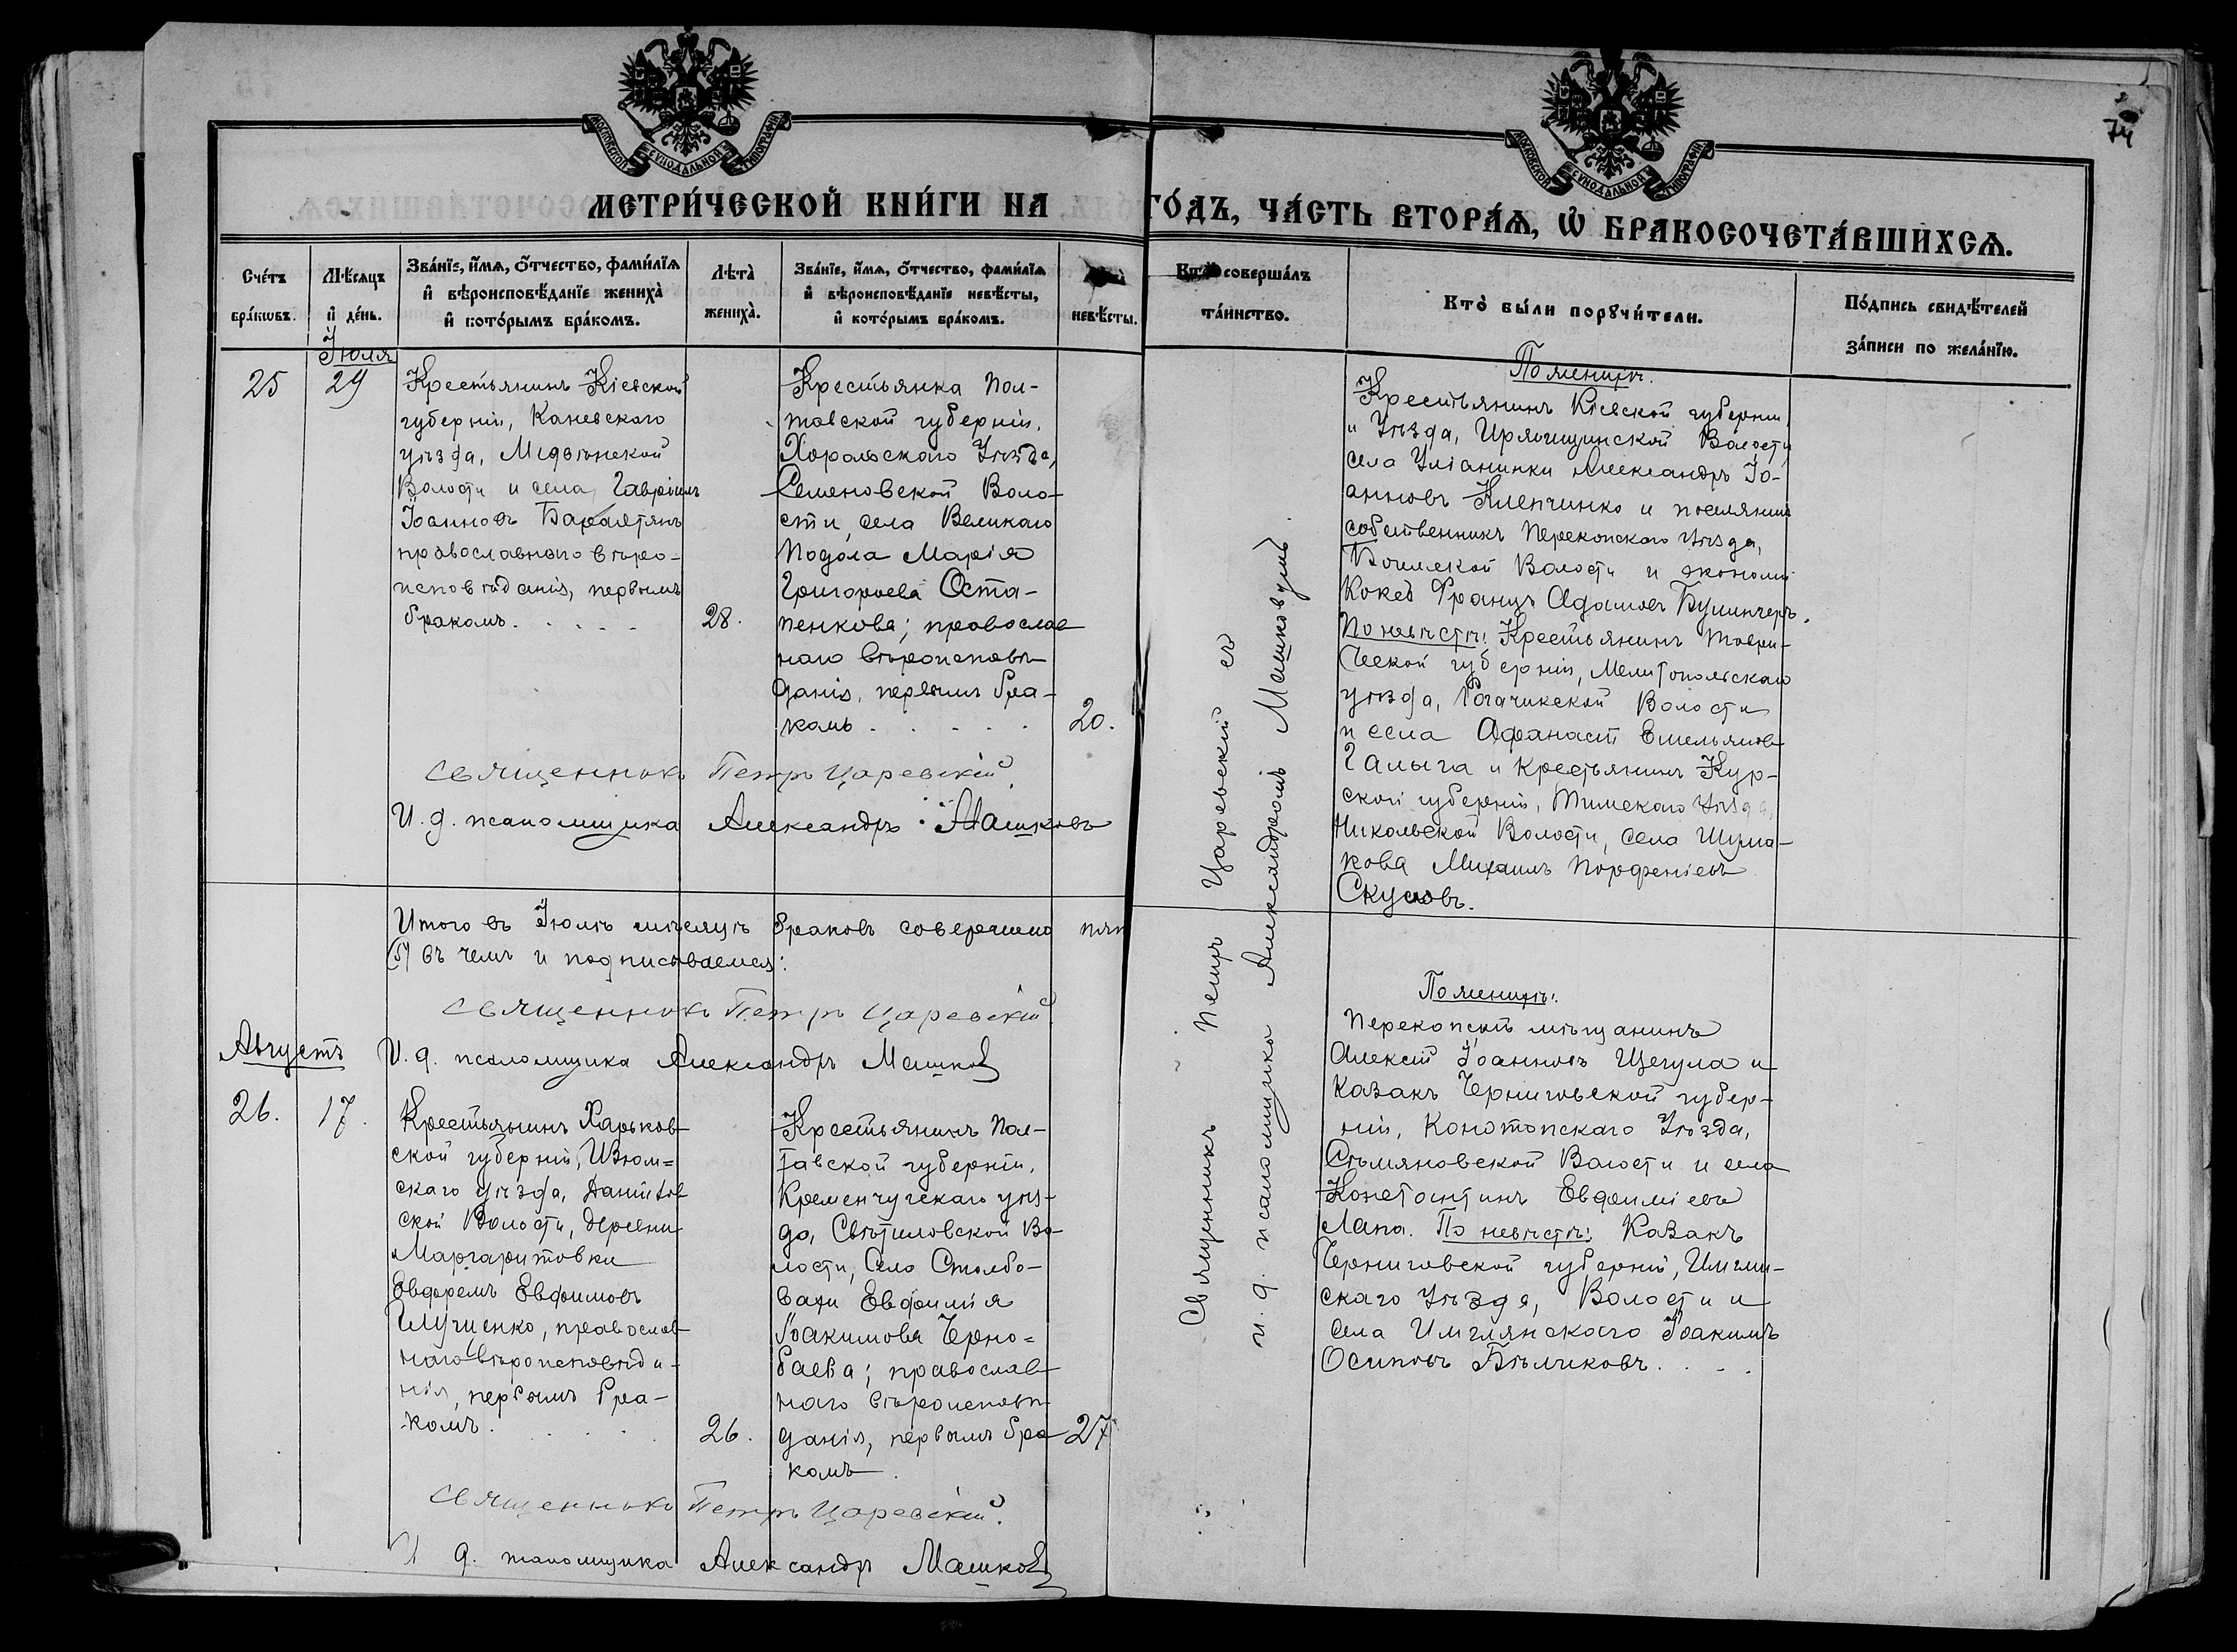 74
МОСКОВСКОЙ СѴНОДАЛЬНОЙ ТИПОГРАФІИ
МОСКОВСКОЙ СѴНОДАЛЬНОЙ ТИПОГРАФІИ
МЕТРИ́ЧЕСКОЙ КНИ́ГИ НА ГО́ДЪ, ЧА́СТЬ ВТОРА́Ѧ, Ѽ БРАКОСОЧЕТА́ВШИХСѦ.
Сче́тъ бра́кѡвъ.
Мѣ́сяцъ и҆ де́нь.
Зва́нїе, и҆́мя, ѻ҆́тчество, фами́лїя
и҆ вѣроисповѣ́данїе жениха̀
и҆ кото́рымъ бра́комъ.
Лѣта̀
жениха̀.
Зва́нїе, и҆́мя, ѻ҆́тчество, фами́лїя
и҆ вѣроисповѣ́данїе невѣ́сты,
и҆ кото́рымъ бра́комъ.
невѣ́сты.
Кто̀ соверша́лъ
та́инство.
Кто̀ бы́ли порꙋчи́тели.
По́дпись свидѣ́телей
за́писи по жела́нїю.
Іюля
25
29
Крестьянинъ Кіевской
губерніи, Каневскаго
уѣзда, Медвинской
Волости и села, Гавріилъ
Іоанновъ
православнаго вѣро-
исповѣданія, первымъ
бракомъ.
28.
Крестьянка Пол-
тавской губерніи,
Хорольскаго Уѣзда,
Семеновской Воло-
сти, села Великаго
Подола Марія
Григорьева Оста-
пенкова; православ
наго вѣроисповѣ-
данія, первымъ бра-
комъ
20.
Священникъ Петръ Царевскій
И. д. псаломщика Александръ Машковъ
По женихѣ.
Крестьянинъ Кіевской губерніи
и Уѣзда, Волости
села Уліаники Александръ Іо-
анновъ Клепчинко и поселянинъ
собственникъ Перекопскаго Уѣзда,
Волости и экономіи
Кокей Францъ Адамовъ
По невѣстѣ: Крестьянинъ Таври-
ческой губерніи, Мелитопольскаго
уѣзда, Рогачикской Волости
и села Афанасій Емельяновъ
Галыга и Крестьянинъ Кур-
ской губерніи, Тимскаго Уѣзда,
Никольской Волости, села Шума-
кова Михаилъ Порфеніевъ
Священникъ Петръ Царевскій съ
и. д. псаломщика Александромъ Машковымъ.
Итого въ Іюлѣ мѣсяцѣ браковъ совершено пять
(5) въ чемъ и подписываемся:
Священникъ Петръ Царевскій
И. д. псаломщика Александръ Машковъ
Августъ
26.
17.
Крестьянинъ Харьков-
ской губерніи, Изюм=
скаго уѣзда,
ской Волости, деревни
Маргаритовки
Евфремъ Евфимовъ
православ
наго вѣроисповѣда-
нія, первымъ бра-
комъ.
26.
Крестьянинъ Пол-
тавской губерніи,
Кременчугскаго уѣз-
да, Свѣтиловской Во-
лости, Село Столбо-
вахи Евфимія
Іоакимова Черно=
баева; православ
наго вѣроисповѣ-
данія, первымъ бра
комъ.
27
Священникъ Петръ Царевскій.
И д. псаломщика Александръ Машковъ
По женихѣ:
Перекопскій мѣщанинъ
Алексій Іоанновъ Щегула и
Казакъ Черниговской губер-
ніи, Конотопскаго Уѣзда,
Волости и села
Константинъ Евфиміевъ
Лапа. По невѣстѣ: Казакъ
Черниговской губерніи,
скаго Уѣзда, Волости и
села Имглянскаго Іоакимъ
Осиповъ Бѣликовъ.